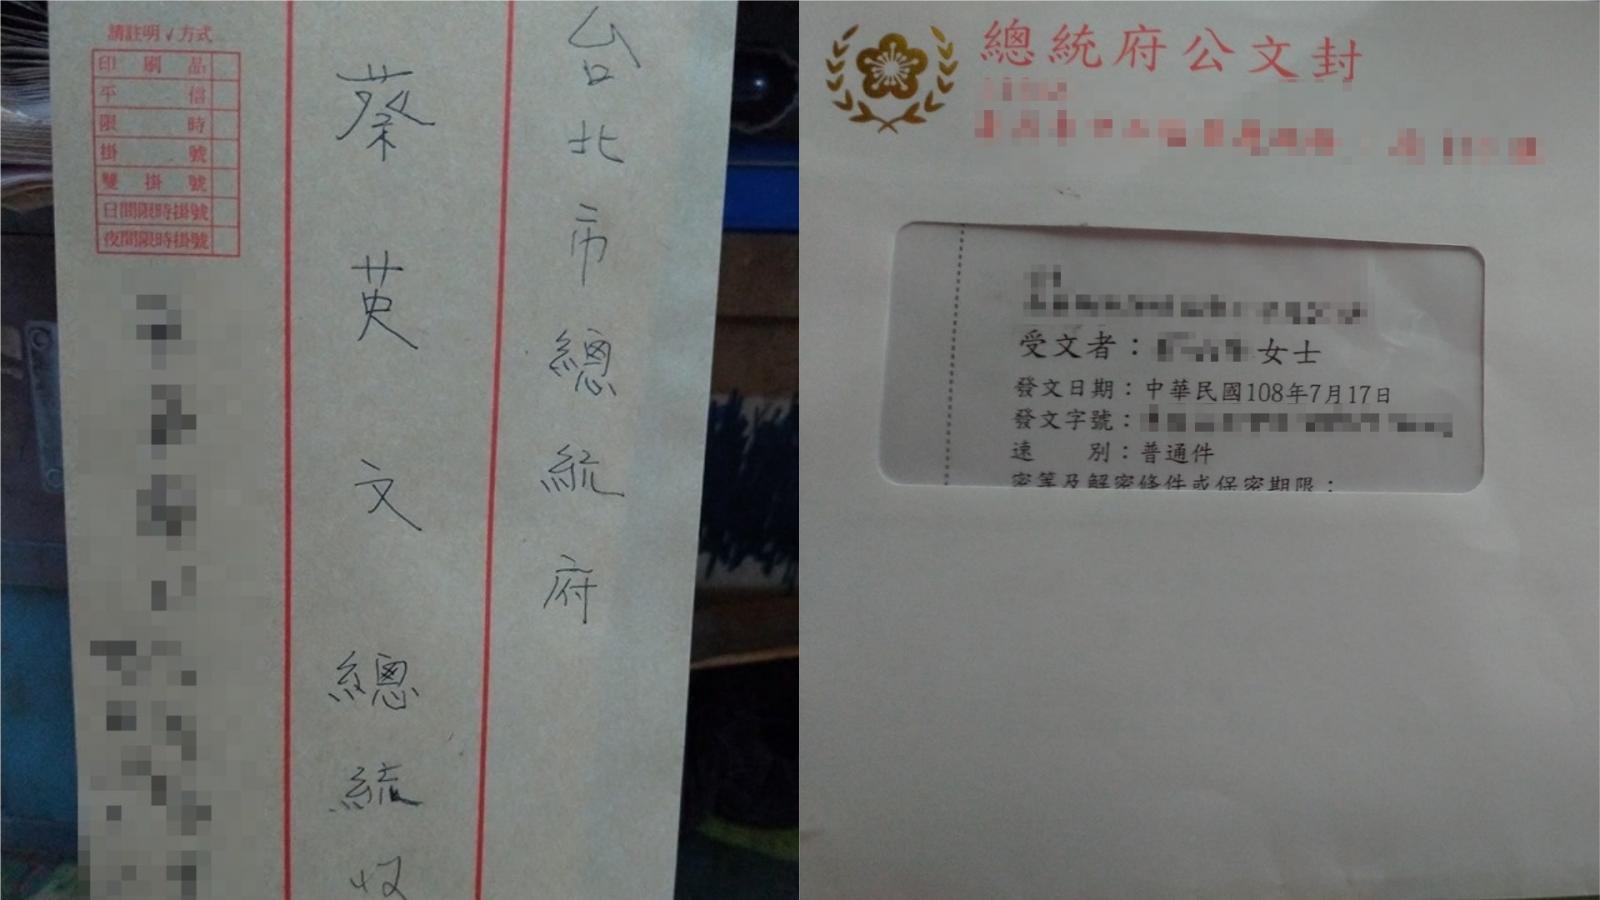 請註明√方式
印刷品
平信
限時
掛號
雙掛號
日間限時掛號
夜間限時掛號
台北市總統府
蔡英文總統收
總統府公文封
受文者：女士
發文日期：中華民國108年7月17日
發文字號：
速別：普通件
密等及解密條件或保密期限：